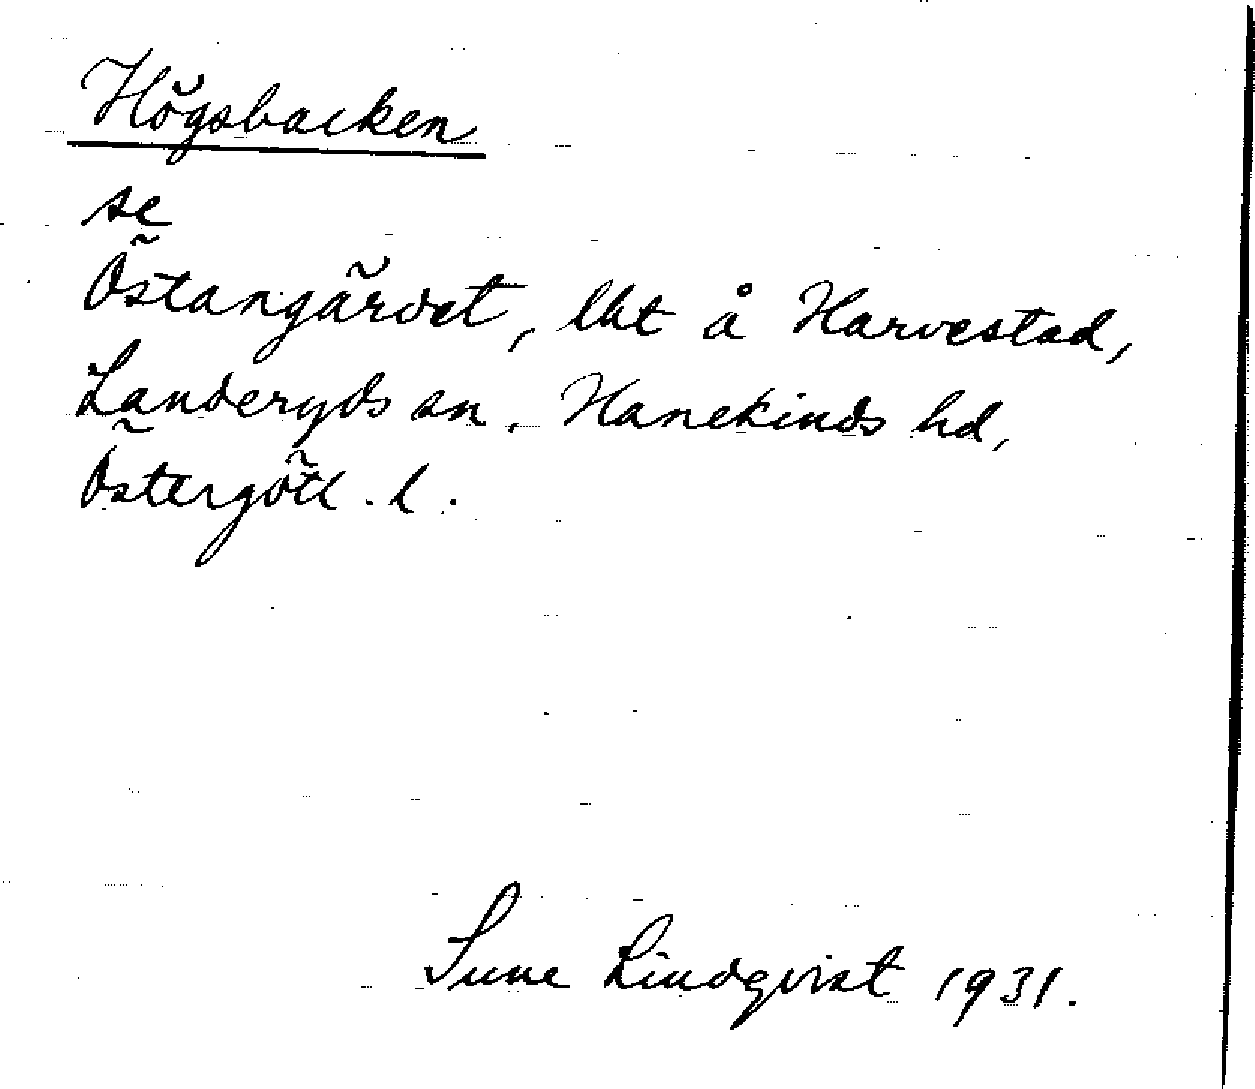 Högsbacken
se
Östangärdet, lht å Harvestad,
Landeryds sn, Hanekinds hd,
Östergötl. l.
Sune Lindqvist 1931.